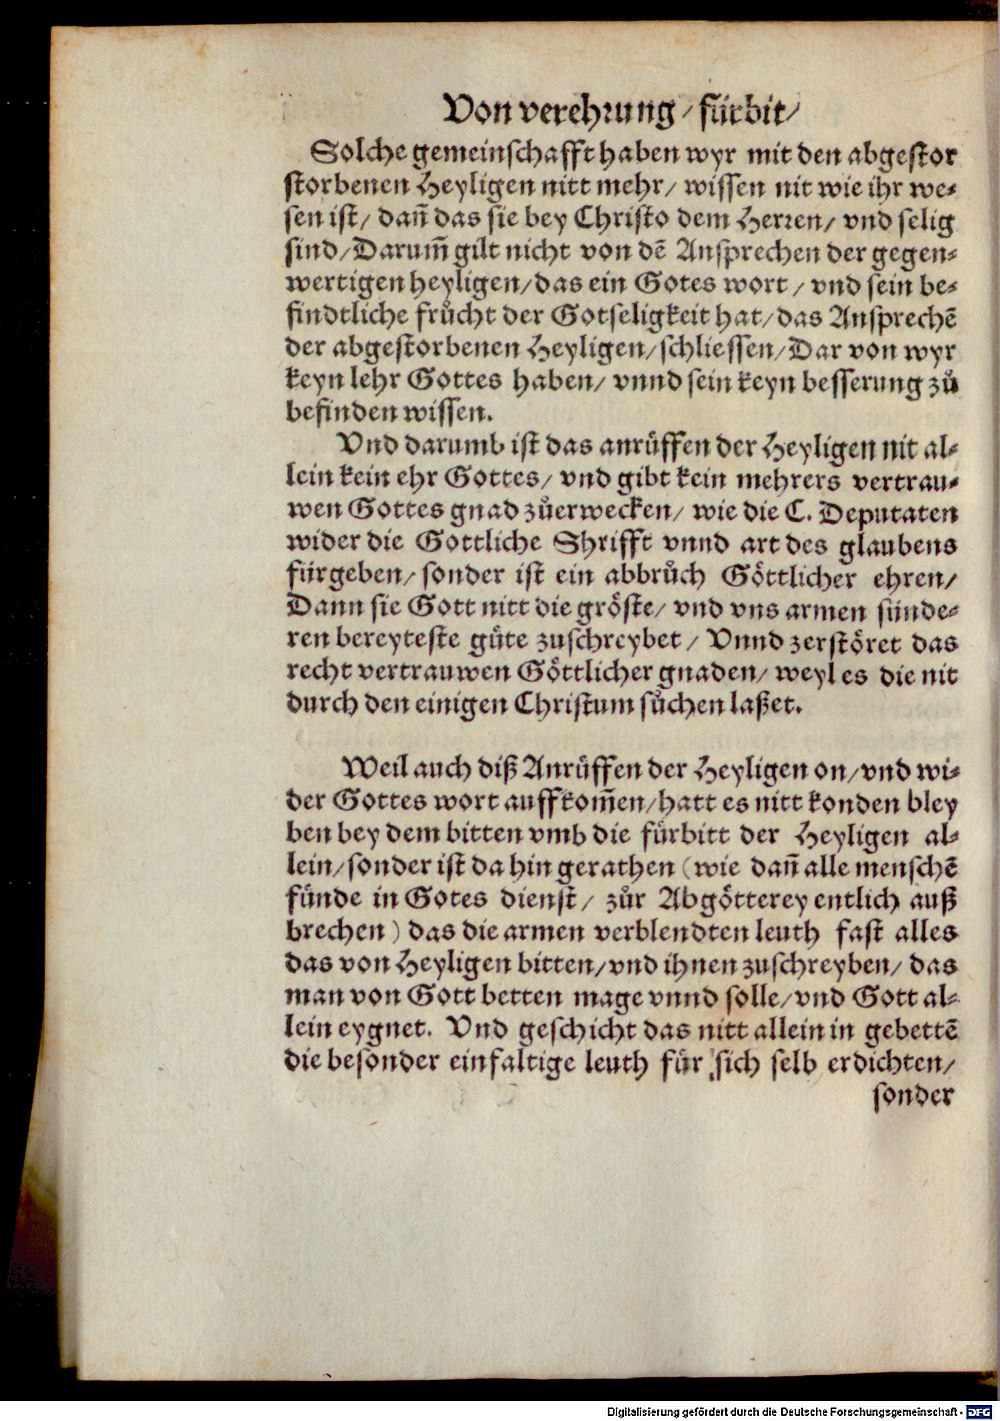 Von verehrung / fürbit /
Solche gemeinschafft haben wyr mit den abgestor
storbenen Heyligen nitt mehr / wissen nit wie ihr we-
sen ist / dañ das sie bey Christo dem Herren / vnd selig
sind / Darum̃ gilt nicht von dẽ Ansprechen der gegen-
wertigen heyligen / das ein Gotes wort / vnd sein be-
findtliche frůcht der Gotseligkeit hat / das Ansprechẽ
der abgestorbenen Heyligen / schliessen / Dar von wyr
keyn lehr Gottes haben / vnnd sein keyn besserung zů
befinden wissen.
Vnd darumb ist das anrüffen der Heyligen nit al-
lein kein ehr Gottes / vnd gibt kein mehrers vertrau-
wen Gottes gnad zůerwecken / wie die C. Deputaten
wider die Gottliche Shrifft vnnd art des glaubens
fürgeben / sonder ist ein abbrůch Göttlicher ehren /
Dann sie Gott nitt die gröste / vnd vns armen sünde-
ren bereyteste güte zuschreybet / Vnnd zerstöret das
recht vertrauwen Göttlicher gnaden / weyl es die nit
durch den einigen Christum sůchen laßet.
Weil auch diß Anrüffen der Heyligen on / vnd wi-
der Gottes wort auffkom̃en / hatt es nitt konden bley
ben bey dem bitten vmb die fürbitt der Heyligen al-
lein / sonder ist da hin gerathen (wie dañ alle menschẽ
fünde in Gotes dienst / zůr Abgötterey entlich auß
brechen) das die armen verblendten leuth fast alles
das von Heyligen bitten / vnd ihnen zuschreyben / das
man von Gott betten mage vnnd solle / vnd Gott al-
lein eygnet. Vnd geschicht das nitt allein in gebettẽ
die besonder einfaltige leuth für sich selb erdichten /
sonder
Digitalisierung gefördert durch die Deutsche Forschungsgemeinschaft - DFG